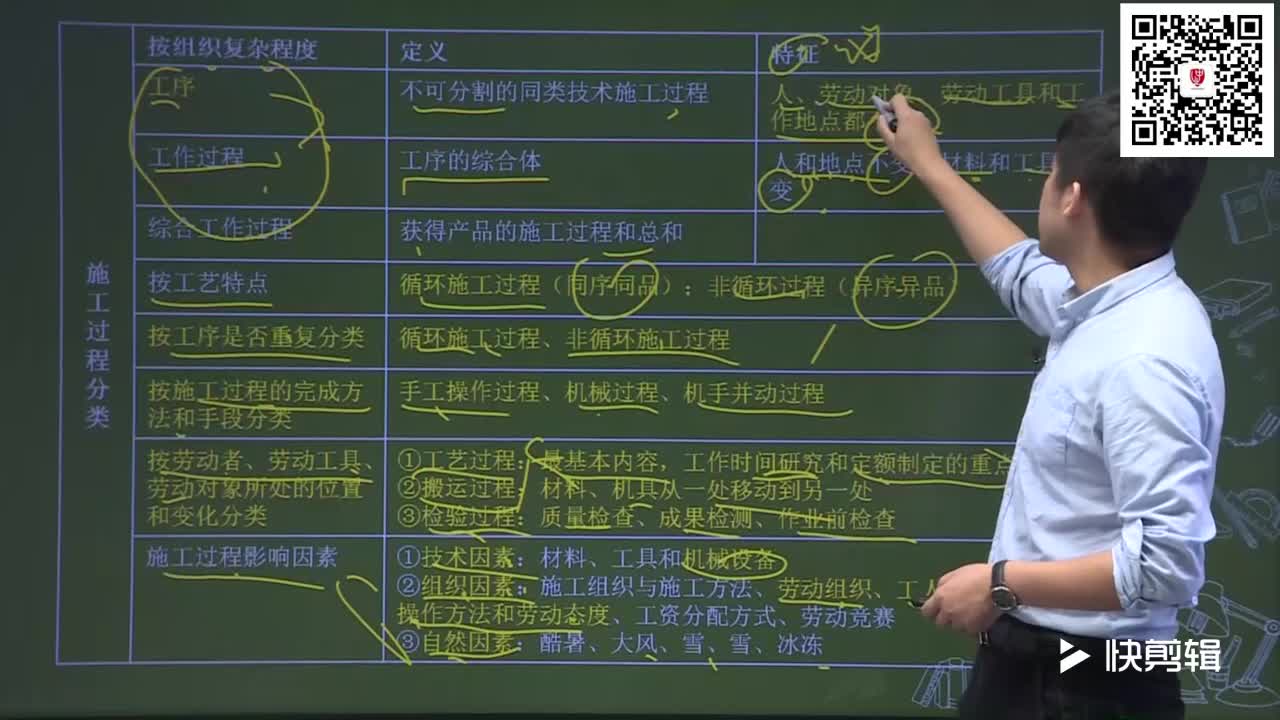 按组织复杂程度 定义 特征
工序 不可分割的同类技术施工过程 人、劳动对象、劳动工具和工
作地点都
工作过程 工序的综合体 人和地点不变 材料和工具
变
综合工作过程 获得产品的施工过程和总和
施工过程分类
按工艺特点 循环施工过程（同序同品）；非循环过程（异序异品
按工序是否重复分类 循环施工过程、非循环施工过程
按施工过程的完成方 手工操作过程、机械过程、机手并动过程
法和手段分类
按劳动者、劳动工具、 ①工艺过程：最基本内容，工作时间研究和定额制定的重点
劳动对象所处的位置 ②搬运过程：材料、机具从一处移动到另一处
和变化分类 ③检验过程：质量检查、成果检测、作业前检查
施工过程影响因素 ①技术因素：材料、工具和机械设备
②组织因素：施工组织与施工方法、劳动组织、工人
操作方法和劳动态度、工资分配方式、劳动竞赛
③自然因素：酷暑、大风、雪、雪、冰冻
快剪辑